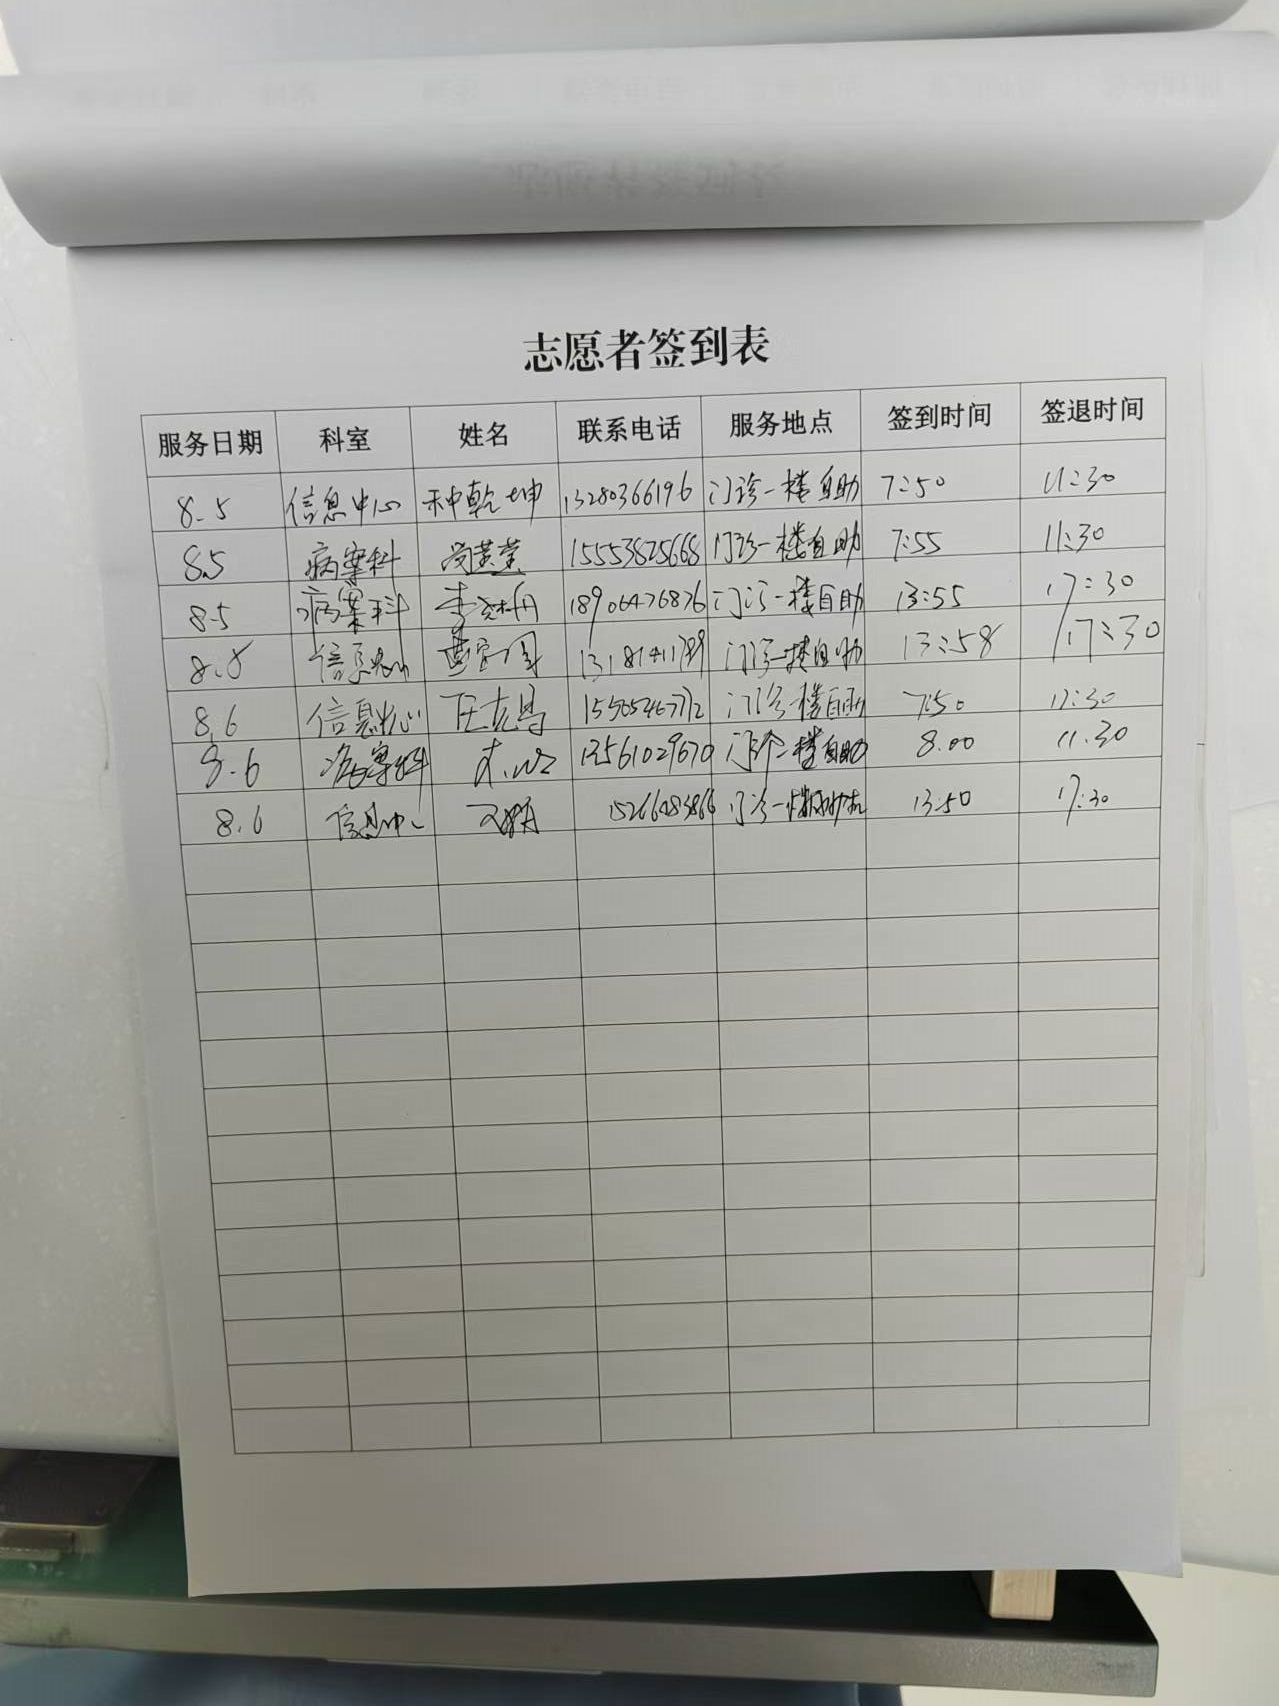 志愿者签到表
服务日期 科室 姓名 联系电话 服务地点 签到时间 签退时间
8.5 信息中心 种乾坤 13280366196 门诊一楼自助 7:50 11:30
8.5 病案科 15553825668 门诊一楼自助 7:55 11:30
8.5 病案科 18906476876 门诊一楼自助 13:55 17:30
8.5 信息中心 门诊一楼自助 13:58 17:30
8.6 信息中心 门诊一楼自助 7:50 11:30
8.6 病案科 13561029670 门诊一楼自助 8.00 11.30
8.6 信息中心 门诊一楼 13:50 17:30